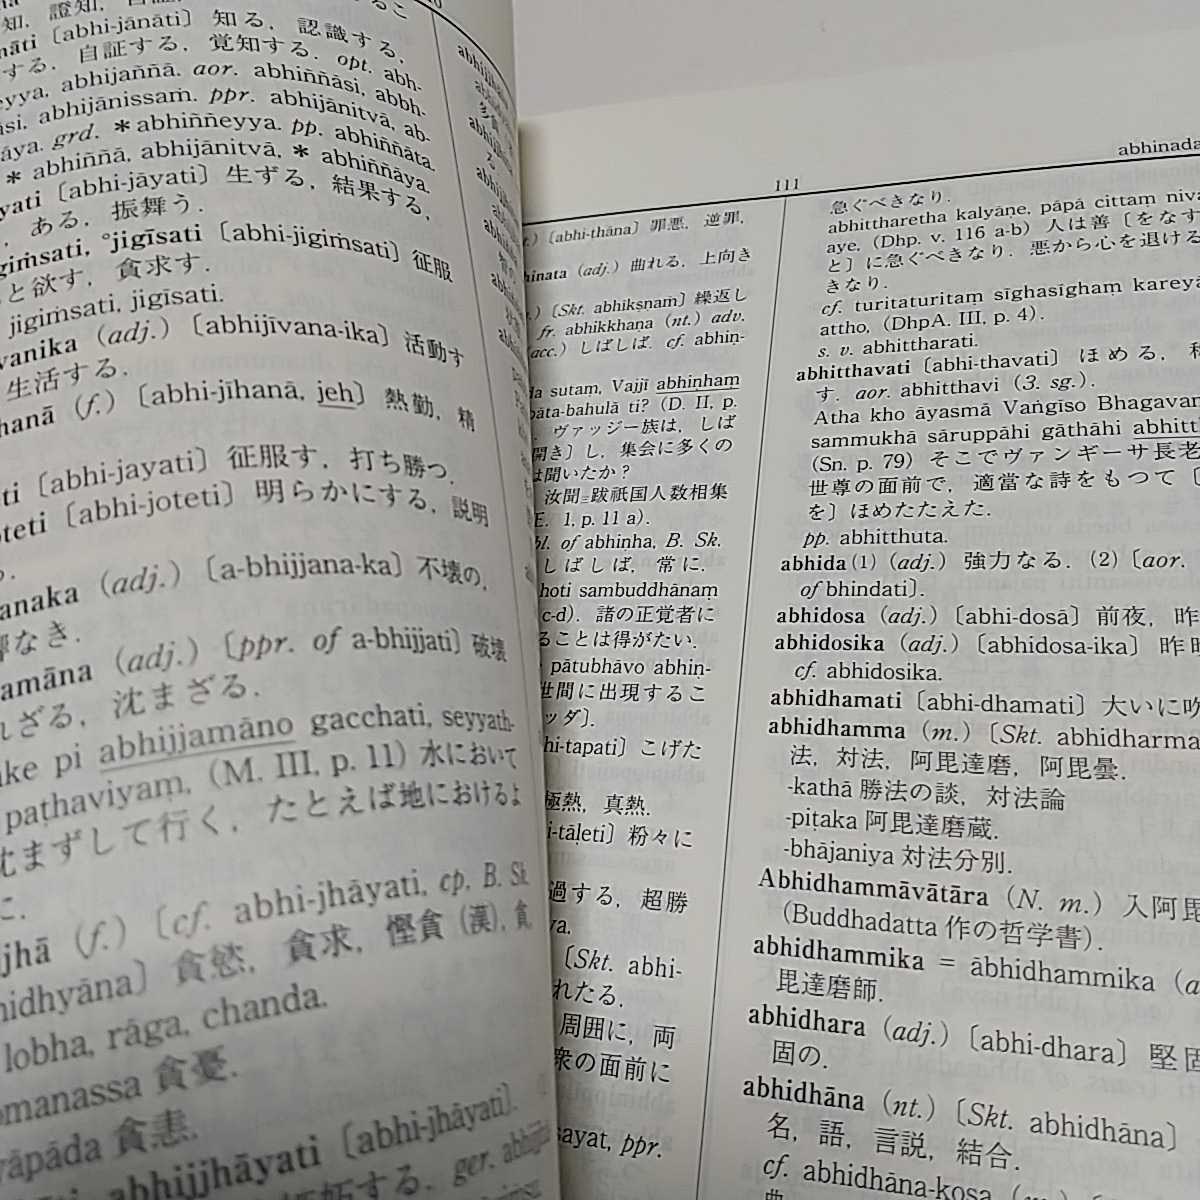 知，證知，自証
āti〔abhi-jānāti〕知る，認識する，
する．自証する，覚知する．opt. abh-
eyya, abhijaññā. aor. abhiññāsi, abbh-
āsi, abhijānissaṁ. ppr. abhijānitvā, ab-
āya. grd. ＊abhiññeyya. pp. abhiññāta.
＊abhiññā, abhijānitvā, ＊abhiññāya.
yati〔abhi-jāyati〕生ずる，結果する，
，ある，振舞う．
giṁsati, °jigīsati〔abhi-jigiṁsati〕征服
と欲す，貪求す．
jigiṁsati, jigīsati.
vanika (adj.)〔abhijīvana-ika〕活動す
生活する．
hanā (f.)〔abhi-jīhanā, jeh〕熱勤，精
ti〔abhi-jayati〕征服す，打ち勝つ．
oteti〔abhi-joteti〕明らかにする，説明
anaka (adj.)〔a-bhijjana-ka〕不壊の，
なき．
amāna (adj.)〔ppr. of a-bhijjati〕破壊
れざる，沈まざる．
ke pi abhijjamāno gacchati, seyyath-
paṭhaviyaṃ, (M. III, p. 11) 水において
沈まずして行く，たとえば地におけるよ
に．
jhā (f.)〔cf. abhi-jhāyati, cp. B. Sk
hidhyāna〕貪慾，貪求，慳貪（漢），貪
lobha, rāga, chanda.
omanassa 貪憂．
yāpāda 貪恚．
abhijjhāyati〔abhi-jhāyati〕．
する．ger. abhijjh
111
abhinada
〔abhi-ṭhāna〕罪悪，逆罪，
hinata (adj.) 曲れる，上向き
〔Skt. abhikṣṇaṃ〕繰返し
fr. abhikkhaṇa (nt.) adv.
(acc.) しばしば．cf. abhiṇ-
da sutaṃ, Vajjī abhiṇhaṃ
pāta-bahulā ti? (D. II, p.
．ヴァッジー族は，しば
開き〕し，集会に多くの
は聞いたか？
汝聞＝跋祇国人数相集
E. 1, p. 11 a).
bl. of abhiṇha, B. Sk.
しばしば，常に．
hoti sambuddhānaṃ
c-d)．諸の正覚者に
ることは得がたい．
pātubhāvo abhiṇ-
世間に出現するこ
ッダ〕．
hi-tapati〕こげた
極熱，真熱．
i-tāḷeti〕粉々に
過する，超勝
va.
〔Skt. abhi-
れたる．
周囲に，両
衆の面前に
sayat, ppr.
急ぐべきなり．
abhittharetha kalyāṇe, pāpā cittaṃ niva
aye, (Dhp. v. 116 a-b) 人は善〔をなす
と〕に急ぐべきなり．悪から心を退ける
きなり．
cf. turitaturitaṃ sīghasīghaṃ kareya
attho, (DhpA. III, p. 4).
s. v. abhittharati.
abhitthavati〔abhi-thavati〕ほめる，称
す．aor. abhitthavi (3. sg.).
Atha kho āyasmā Vaṅgīso Bhagavan
sammukhā sāruppāhi gāthāhi abhitth
(Sn. p. 79) そこでヴァンギーサ長老
世尊の面前で，適當な詩をもつて〔
を〕ほめたたえた．
pp. abhitthuta.
abhida (1) (adj.) 強力なる．(2)〔aor.
of bhindati〕．
abhidosa (adj.)〔abhi-dosā〕前夜，昨
abhidosika (adj.)〔abhidosa-ika〕昨
cf. abhidosika.
abhidhamati〔abhi-dhamati〕大いに吹
abhidhamma (m.)〔Skt. abhidharma
法，対法，阿毘達磨，阿毘曇．
-kathā 勝法の談，対法論
-piṭaka 阿毘達磨蔵．
-bhājaniya 対法分別．
Abhidhammāvatāra (N. m.) 入阿毘
(Buddhadatta 作の哲学書)．
abhidhammika = ābhidhammika (a
毘達磨師．
abhidhara (adj.)〔abhi-dhara〕堅固
固の．
abhidhāna (nt.)〔Skt. abhidhāna〕
名，語，言説，結合．
cf. abhidhāna-kosa (m.)
典